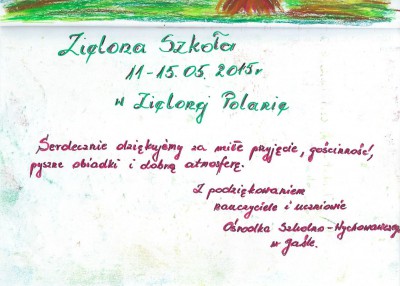 Zielona Szkoła
11-15.05.2015r
w Zielonej Polanie
Serdecznie dziękujemy za miłe przyjęcie, gościnność,
pyszne obiadki i dobrą atmosferę.
Z podziękowaniem
nauczyciele i uczniowie
Ośrodka Szkolno-Wychowawczego
w